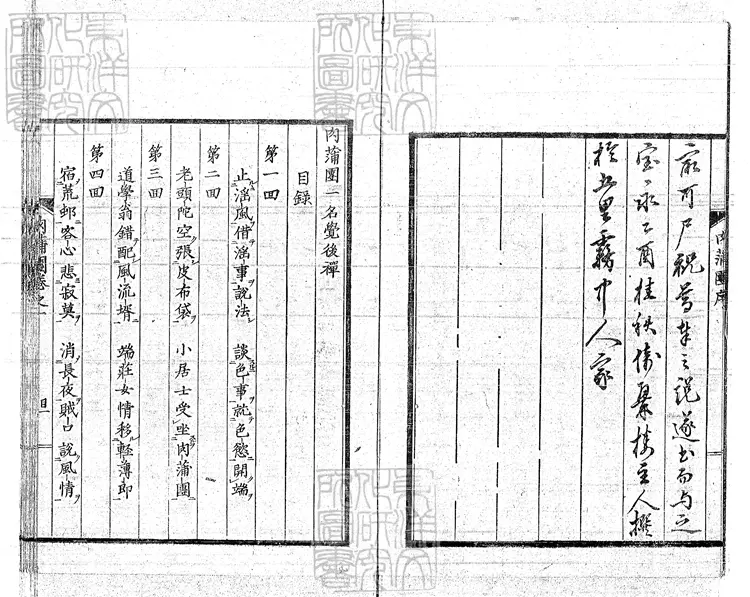 可尸祝之説遂而与之
宝永乙酉桂秋倚翠楼主人撰
於五里霧中人家
肉蒲團序
肉蒲團一名覺後禪
目録
第一回
止淫風借淫事説法 談色事就色慾開端
第二回
老頭陀空張皮布袋 小居士受坐肉蒲團
第三回
道學翁錯配風流壻 端莊女情移輕薄郎
第四回
宿荒郵客心悲寂寞 消長夜賊口説風情
肉蒲團巻之一
東洋文化研究所圖書
東洋文化研究所圖書